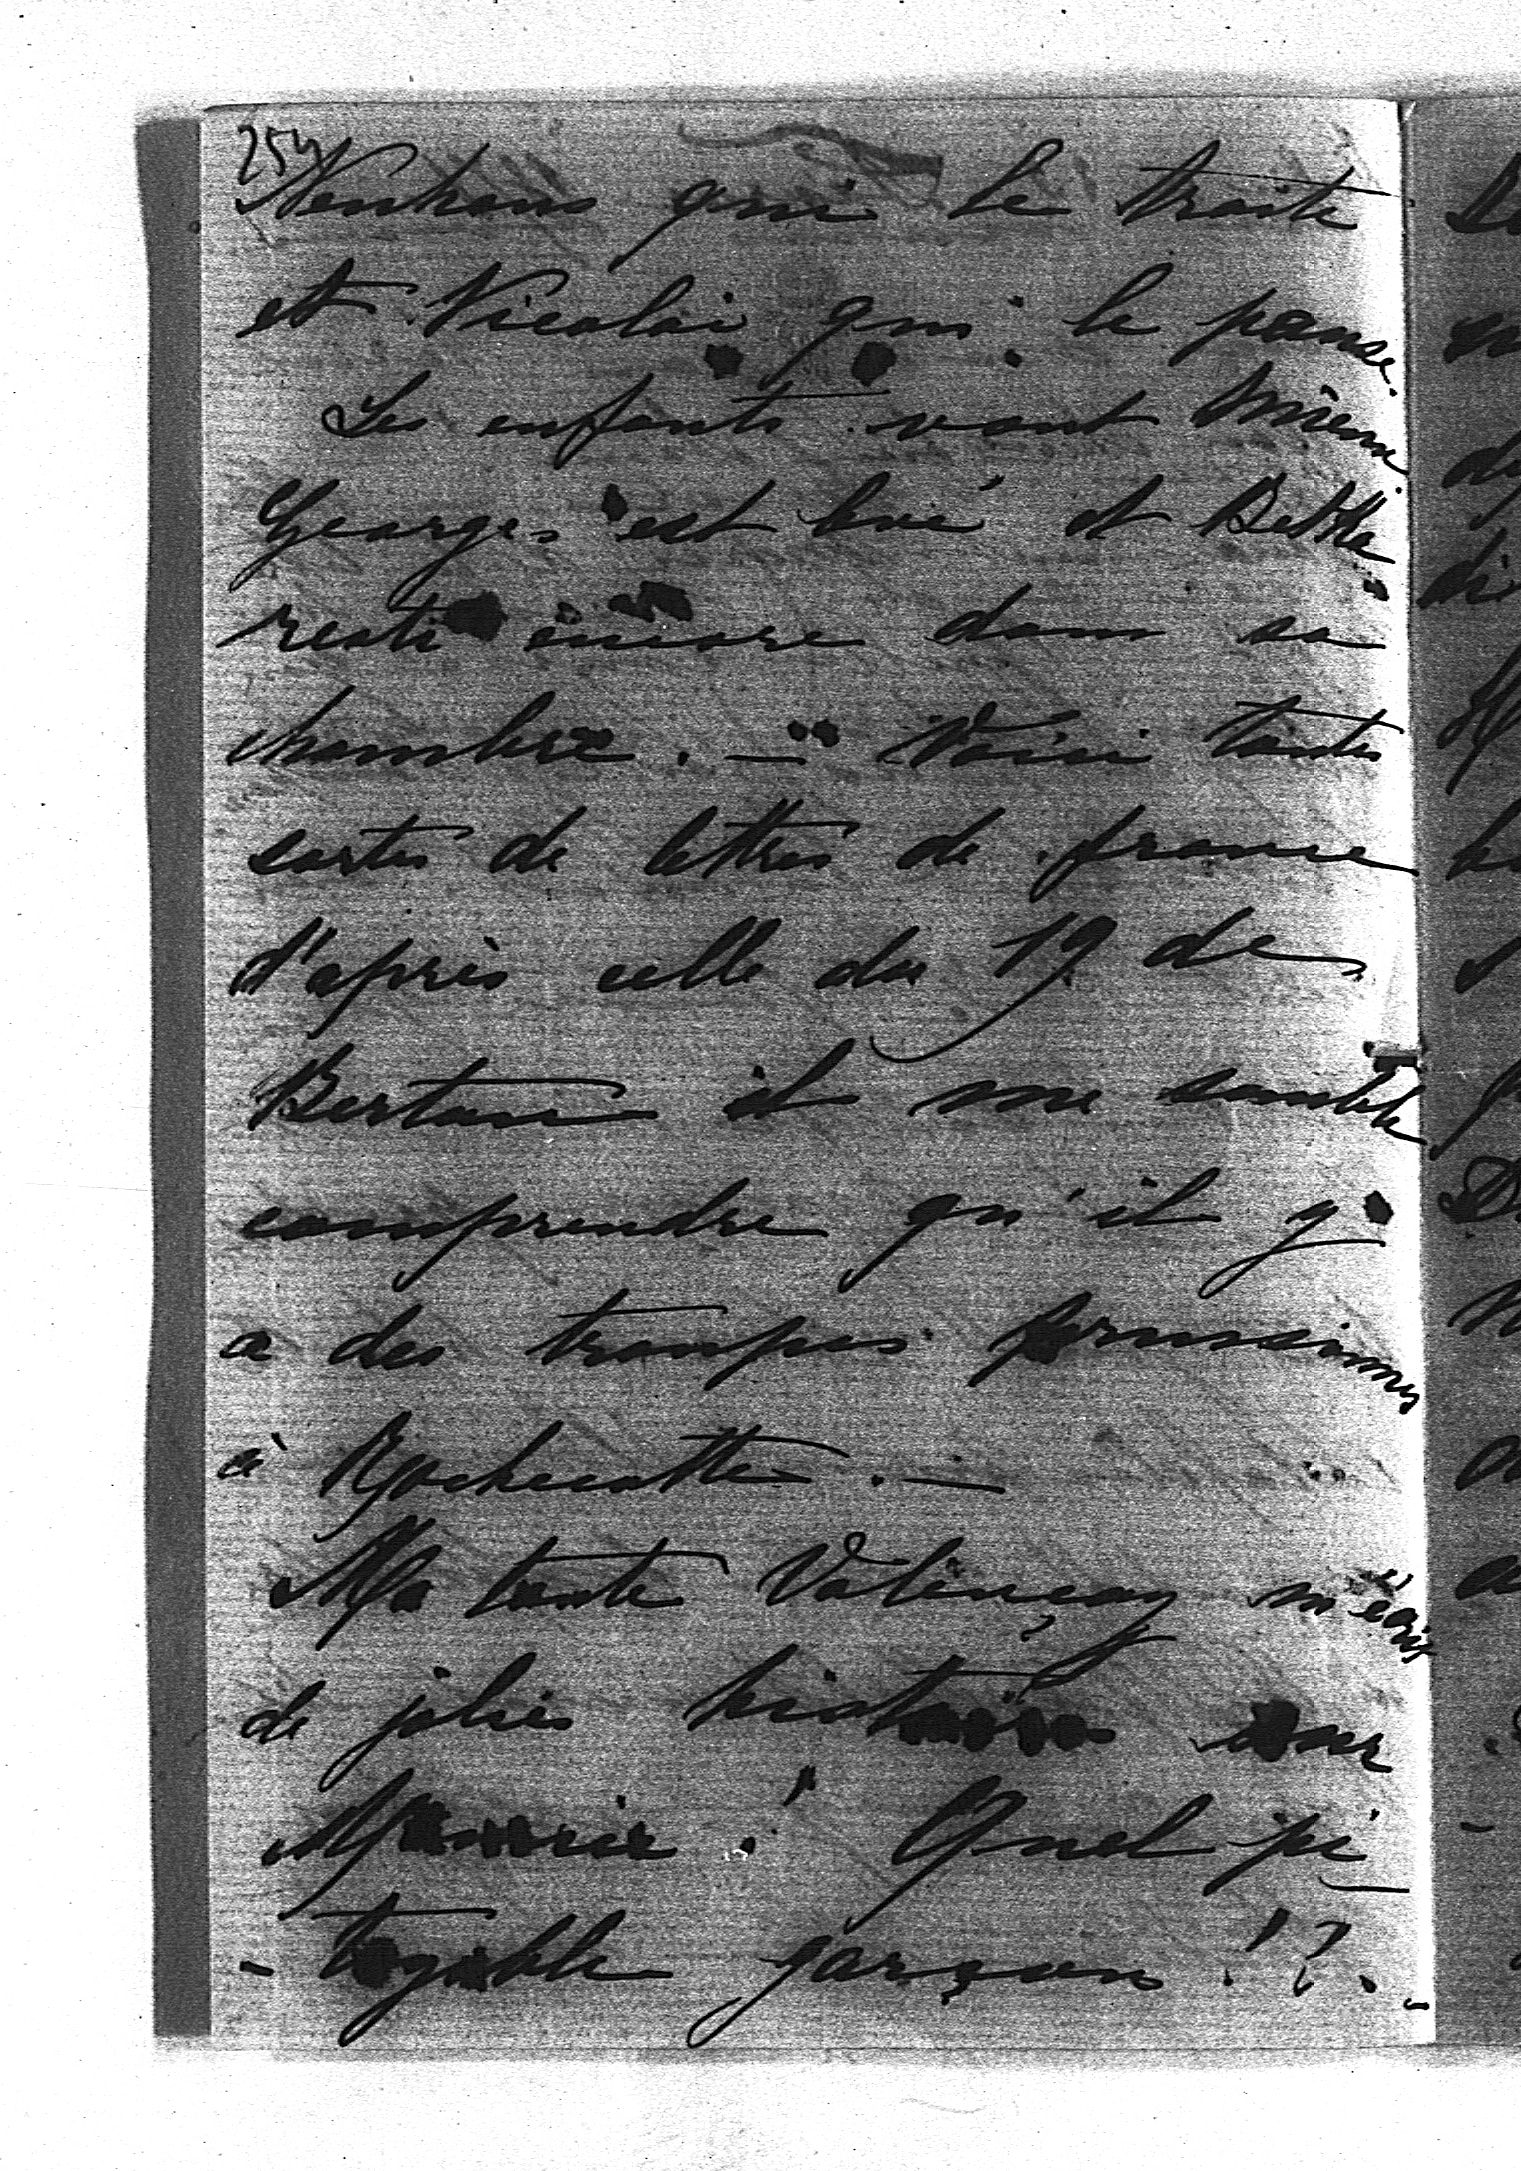 254
Neuhaus qui le traite
et Nicolai qui le panse.
Les enfants vont mieux.
Georges est levé et Bethe
reste encore dans sa
chambre. — Voici toutes
sortes de lettres de france
d'après celle du 19 de
Bertam il me semble
comprendre qu'il y
a des troupes prussiennes
à Rochecotte. —
Ma tante Valençay m'écrit
de jolies histoires sur
Maurice. Quel pi
- toyable garçon !?. -